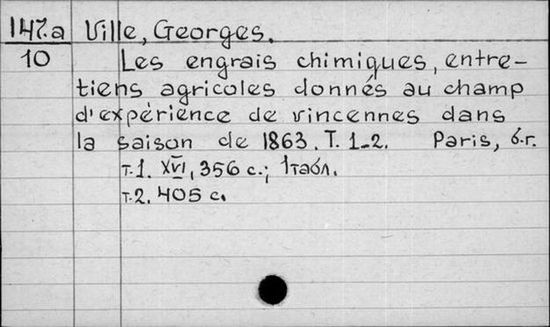 147.a Ville, Georges.
10 Les engrais chimiques, entre-
tiens agricoles donnés au champ
d'expérience de vincennes dans
la saison de 1863. T. 1-2. Paris, б.г.
т.1. XVI, 356 с.; 1табл.
т.2. 405 с.